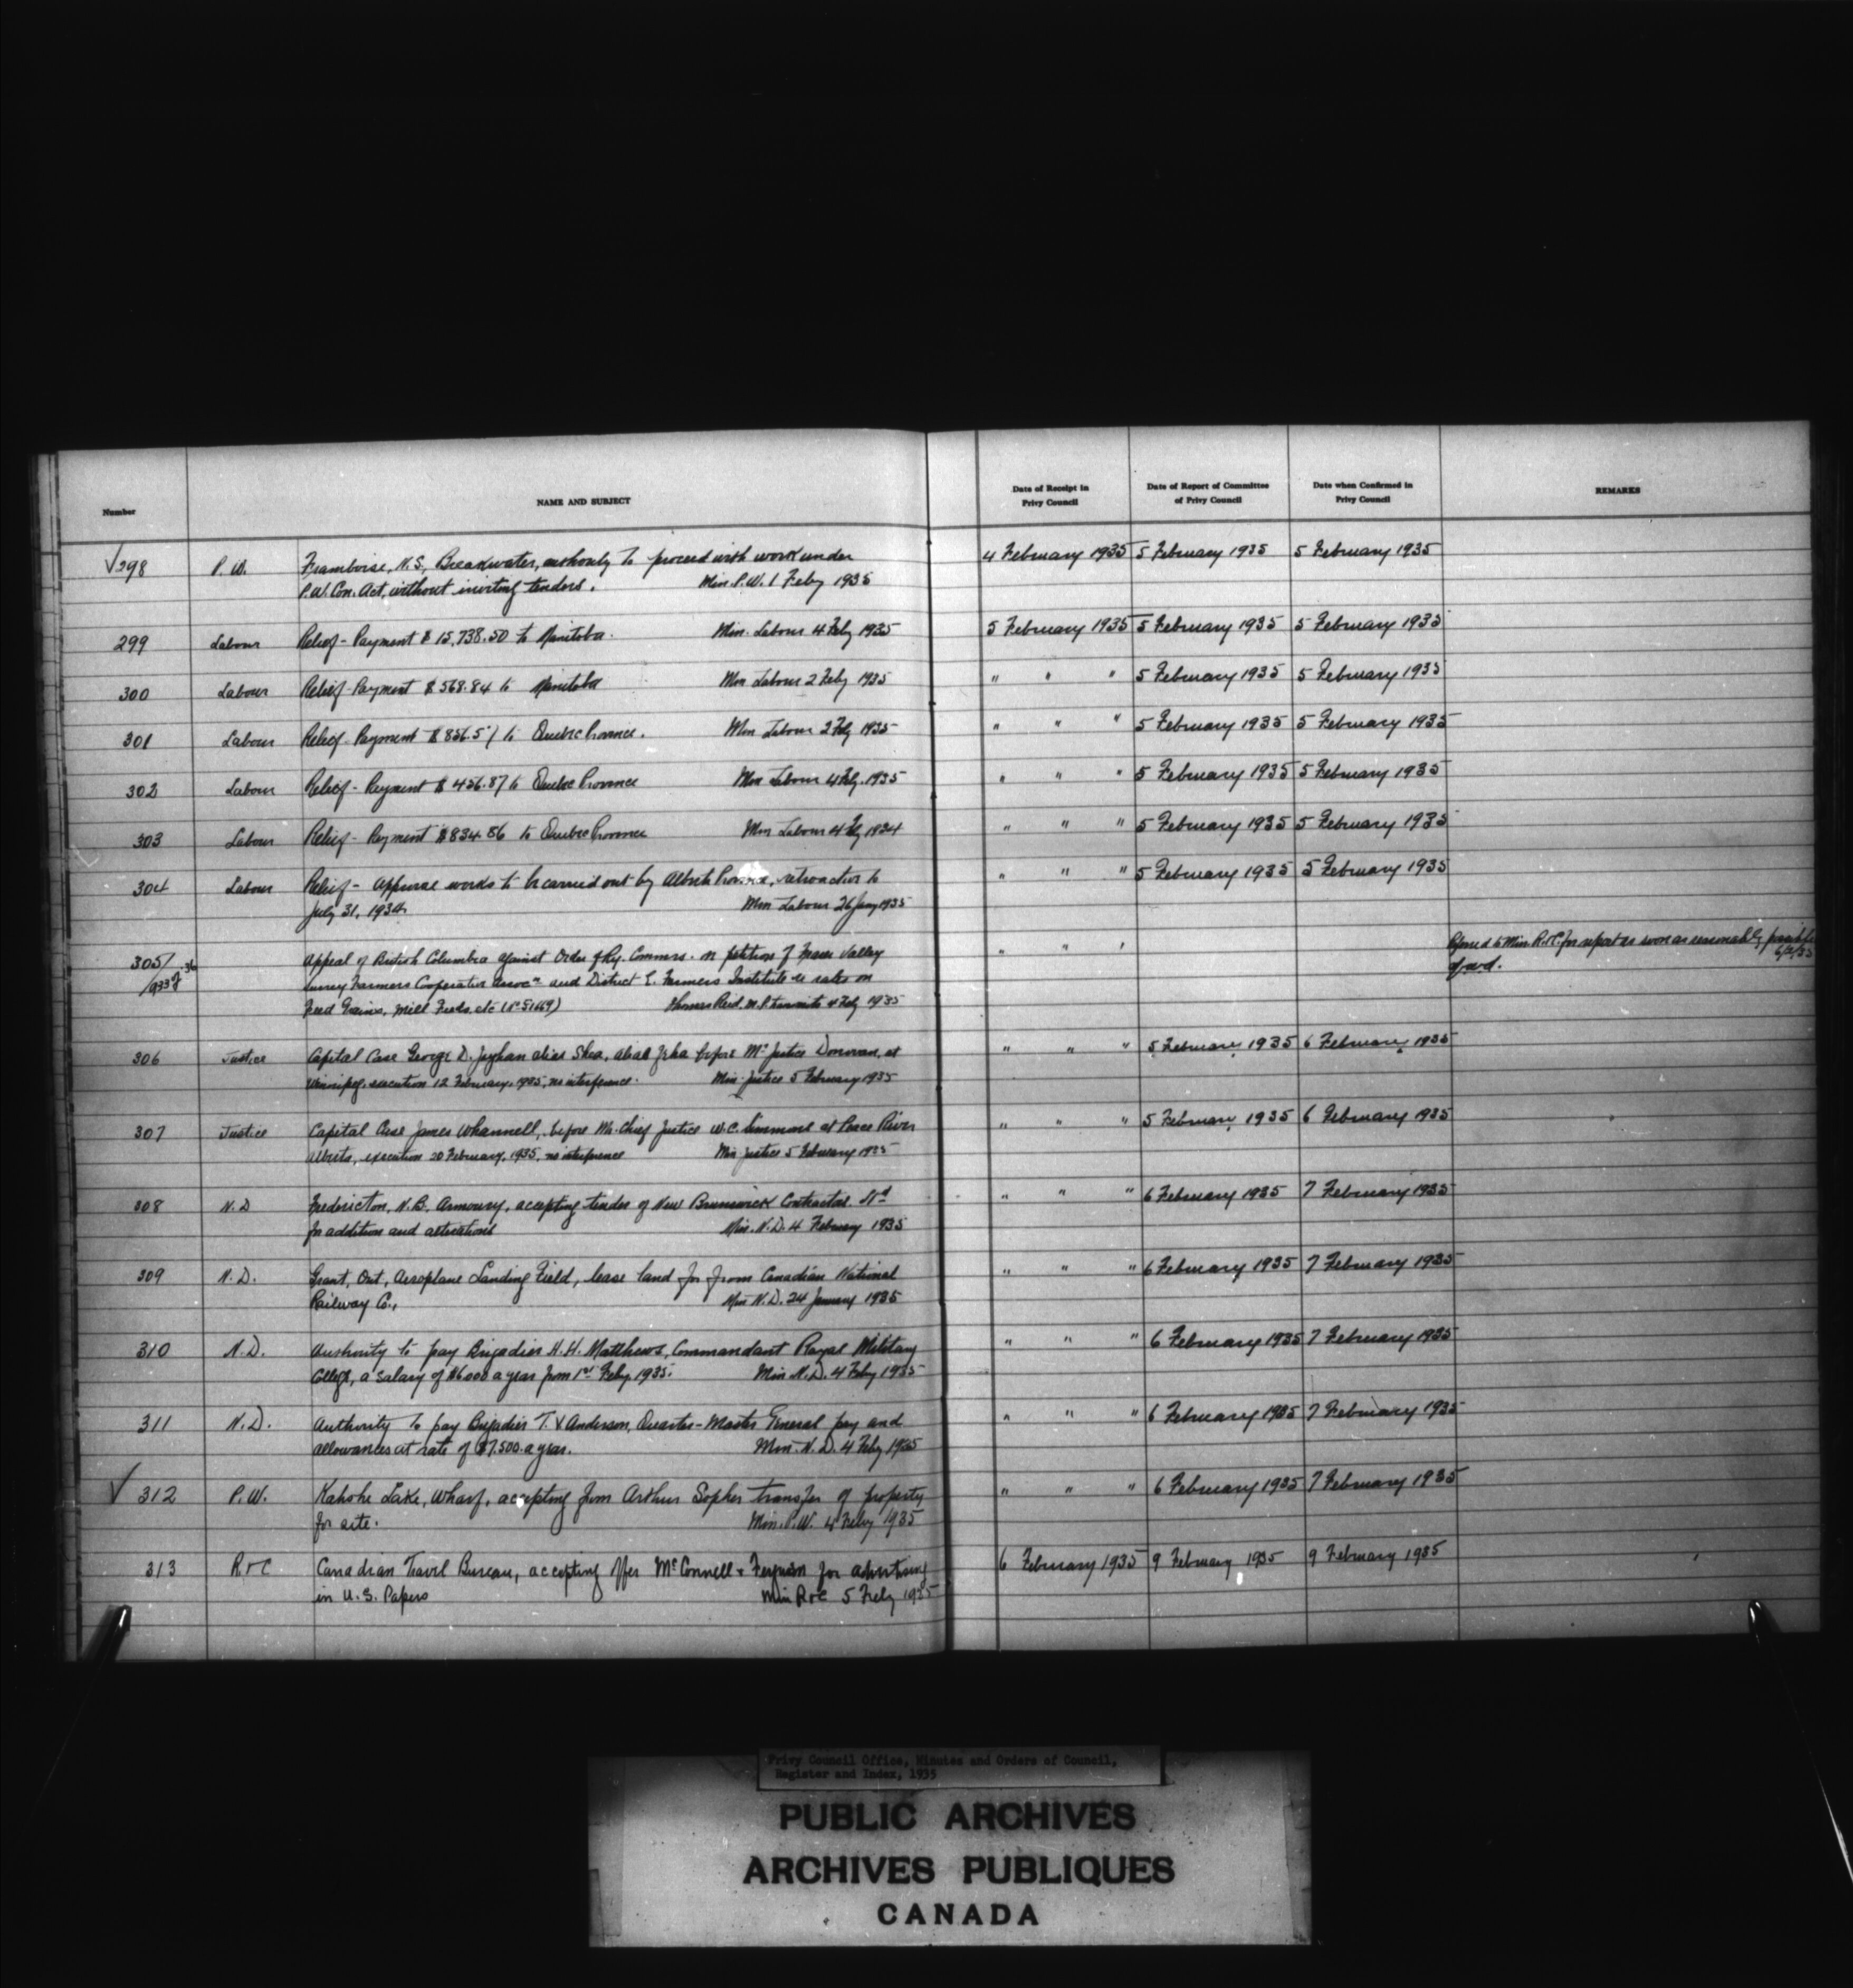 Number NAME AND SUBJECT Date of Receipt in Privy Council Date of Report of Committee of Privy Council Date when Confirmed in Privy Council REMARKS
√298 P.W. Framboise, N.S., Breakwater, authority to proceed with work under 4 February 1935 5 February 1935 5 February 1935
P.W. Con. Act, without inviting tenders. Min. P.W. 1 Feby 1935
299 Labour Relief - Payment $15,738.50 to Manitoba. Min. Labour 4 Feby 1935 5 February 1935 5 February 1935 5 February 1935
300 Labour Relief - Payment $568.84 to Manitoba Min Labour 2 Feby 1935 " " " 5 February 1935 5 February 1935
301 Labour Relief - Payment $856.51 to Quebec Province. Min Labour 2 Feby 1935 " " " 5 February 1935 5 February 1935
302 Labour Relief - Payment $456.87 to Quebec Province Min Labour 4 Feby. 1935 " " " 5 February 1935 5 February 1935
303 Labour Relief - Payment $834.86 to Quebec Province Min Labour 4 Fby 1934 " " " 5 February 1935 5 February 1935
304 Labour Relief - Approval works to be carried out by Alberta Province, retroactive to " " " 5 February 1935 5 February 1935
July 31, 1934. Min Labour 26 Jany 1935
305/ Appeal of British Columbia against Order of Ry. Commrs. on petition of Fraser Valley " " " Referred to Min. R.&C. for report as soon as reasonably possible
Surrey Farmers Cooperative Assocn and District E. Farmers Institute re rates on
Feed Grains, Mill Feeds, etc Thomas Reid, M.P. transmits 4 Feby 1935
306 Justice Capital Case George D. Jayhan alias Shea, alias before Mr Justice Donovan, at " " " 5 February 1935 6 February 1935
Winnipeg, execution 12 February, 1935, no interference. Min Justice 5 February 1935
307 Justice Capital Case James Whannell, before Mr. Chief Justice W.C. Simmons at Peace River " " " 5 February 1935 6 February 1935
Alberta, execution 20 February, 1935, no interference Min Justice 5 February 1935
308 N.D Fredericton, N.B. Armoury, accepting tender of New Brunswick Contractors Ltd " " " 6 February 1935 7 February 1935
for addition and alterations Min. N.D. 4 February 1935
309 N.D. Grant, Ont, Aeroplane Landing Field, lease land for from Canadian National " " " 6 February 1935 7 February 1935
Railway Co., Min N.D. 24 January 1935
310 N.D. Authority to pay Brigadier H.H. Matthews, Commandant Royal Military " " " 6 February 1935 7 February 1935
College, a salary of $6000 a year from 1st Feby 1935. Min N.D. 4 Feby 1935
311 N.D. Authority to pay Brigadier T.V. Anderson, Quarter-Master General pay and " " " 6 February 1935 7 February 1935
allowances at rate of $7.500 a year. Min. N.D. 4 Feby 1935
√ 312 P.W. Kahshe Lake, Wharf, accepting from Arthur Sopher transfer of property " " " 6 February 1935 7 February 1935
for site. Min. P.W. 4 Feby 1935
313 R&C Canadian Travel Bureau, accepting offer McConnell & Ferguson for advertising 6 February 1935 9 February 1935 9 February 1935
in U.S. Papers Min R&C 5 Feby 1935
Privy Council Office, Minutes and Orders of Council,
Register and Index, 1935
PUBLIC ARCHIVES
ARCHIVES PUBLIQUES
CANADA